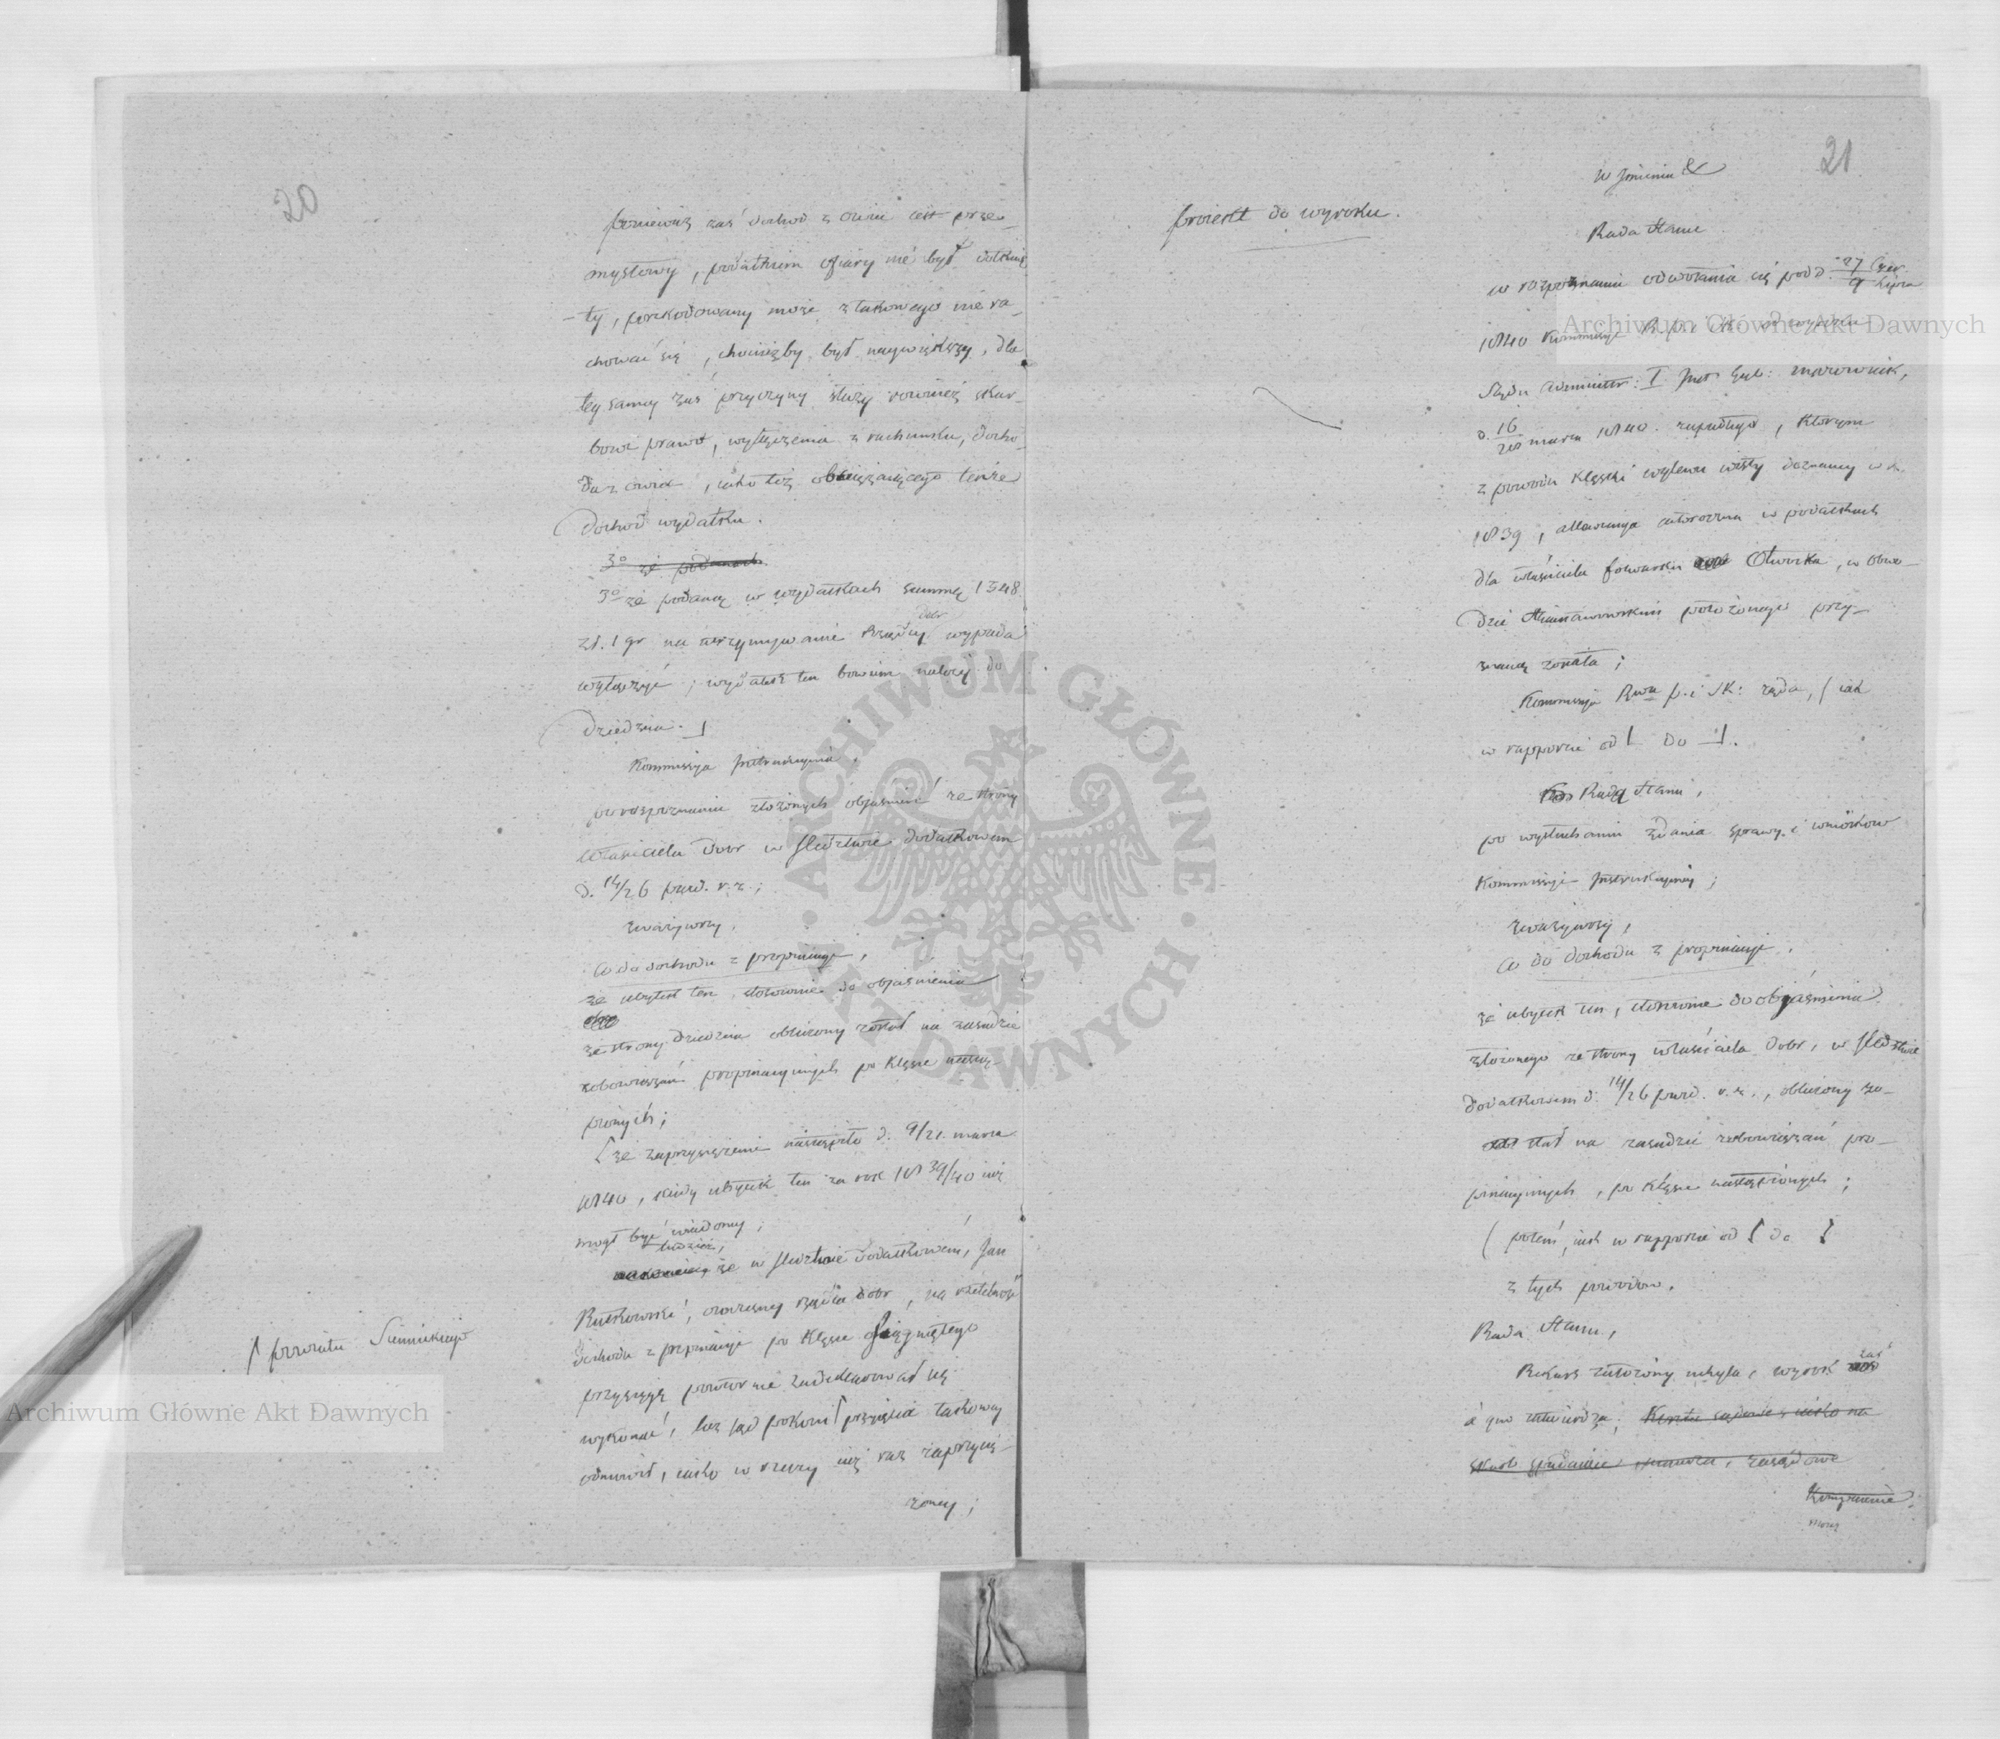 20
Ponieważ zaś dochód z owiec iest prze-
mysłowy, podatkiem ofiary nie był dotknię
-ty, poszkodowany może z takowego nie ra-
chować się, chociażby był największy, dla
tej samej zaś przyczyny służy również skar-
bowi prawo, wyłączenia z rachunku, docho-
du z owiec, iako też obciążaiącego tenże
dochód wydatku.
3o że podana
3o że podaną w wydatkach summę 1348
dobr
zł. 1 gr na utrzymywanie Rządcy wypada
wyłączyć; wydatek ten bowiem należy do
dziedzica.
Kommissya Instrukcyina,
po rozpoznaniu złożonych objaśnień ze strony
właściciela dobr w śledztwie dodatkowem
d. 14/26 paźd. r. z.;
zważywszy,
Co do dochodu z propinacyi,
że ubytek ten, stosownie do objaśnienia
ze strony dziedzica obliczony został na zasadzie
zobowiązań propinacyjnych po klęsce nastą-
pionych;
że zaprzysiężenie nastąpiło d. 9/21. marca
1840, kiedy ubytek ten za rok 1839/40 iuż
mógł być wiadomy;
tudzież,
że w śledztwie dodatkowem, Jan
Rutkowski, owczesny rządca dobr, na rzetelność
dochodu z propinacyi po klęsce osiągniętego
przysięgę powtórnie zadeklarował się
wykonać, lecz sąd pokoiu przyięcia takowey
odmówił, iako w rzeczy iuż raz zaprzysię-
żoney;
powiatu Siennickiego
21
Proiekt do wyroku.
W Imieniu &
Rada Stanu
w rozpoznaniu odwołania się pod d. 27 Czer. / 9 Lipca
1840 Kommissyi R. p. i Sk. od wyroku
Sądu Administr: I Inst: Gub: Mazowieck,
d. 16/28 marca 1840. zapadłego, którym
z powodu klęski wylewu wisły doznaney w r.
1839, allewiacya całoroczna w podatkach
dla właściciela folwarku Otwocka, w Obwo-
dzie Stanisławowskim położonego przy-
znaną została;
Kommissya Rzwa p. i SK: żąda, ( iak
w rapporcie od [ do ].
Rada Stanu,
po wysłuchaniu zdania sprawy i wniosków
Kommissyi Instrukcyiney;
zważywszy,
Co do dochodu z propinacyi,
że ubytek ten, stosownie do objaśnienia
złożonego ze strony właściciela dobr, w śledztwie
dodatkowem d. 14/26 paźd. r. z., obliczony zo-
stał na zasadzie zobowiązań pro-
pinacyinych, po klęsce nastąpionych;
( potem, iak w rapporcie od [ do ]
z tych powodów,
Rada Stanu,
zaś
Rekurs założony uchyla, wyrok
à quo zatwierdza; Koszta sądowe, iako na
Skarb spadaiące, zasądowe
Kompensuie